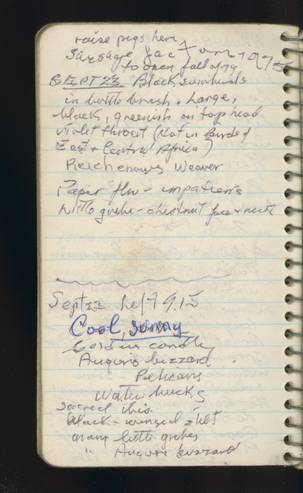 raise pigs here
Sausage fac
to open fall of 97
SEPT 22 Black sunbirds
in bottle brush. Large,
black, greenish on top head
violet throat (Not in Birds of
East & Central Africa)
Reichenows Weaver
Paper flw - impatiens
little grebe - chestnut face & neck
Sept 22 Left 9:15
Cool, sunny
Augur's buzzard
Pelicans
Water bucks
Sacred ibis
black-winged stilt
many little grebes
" Augur buzzard